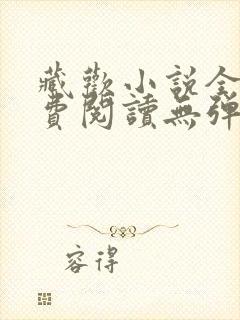 藏歡小說全
費閱讀無彈
容得